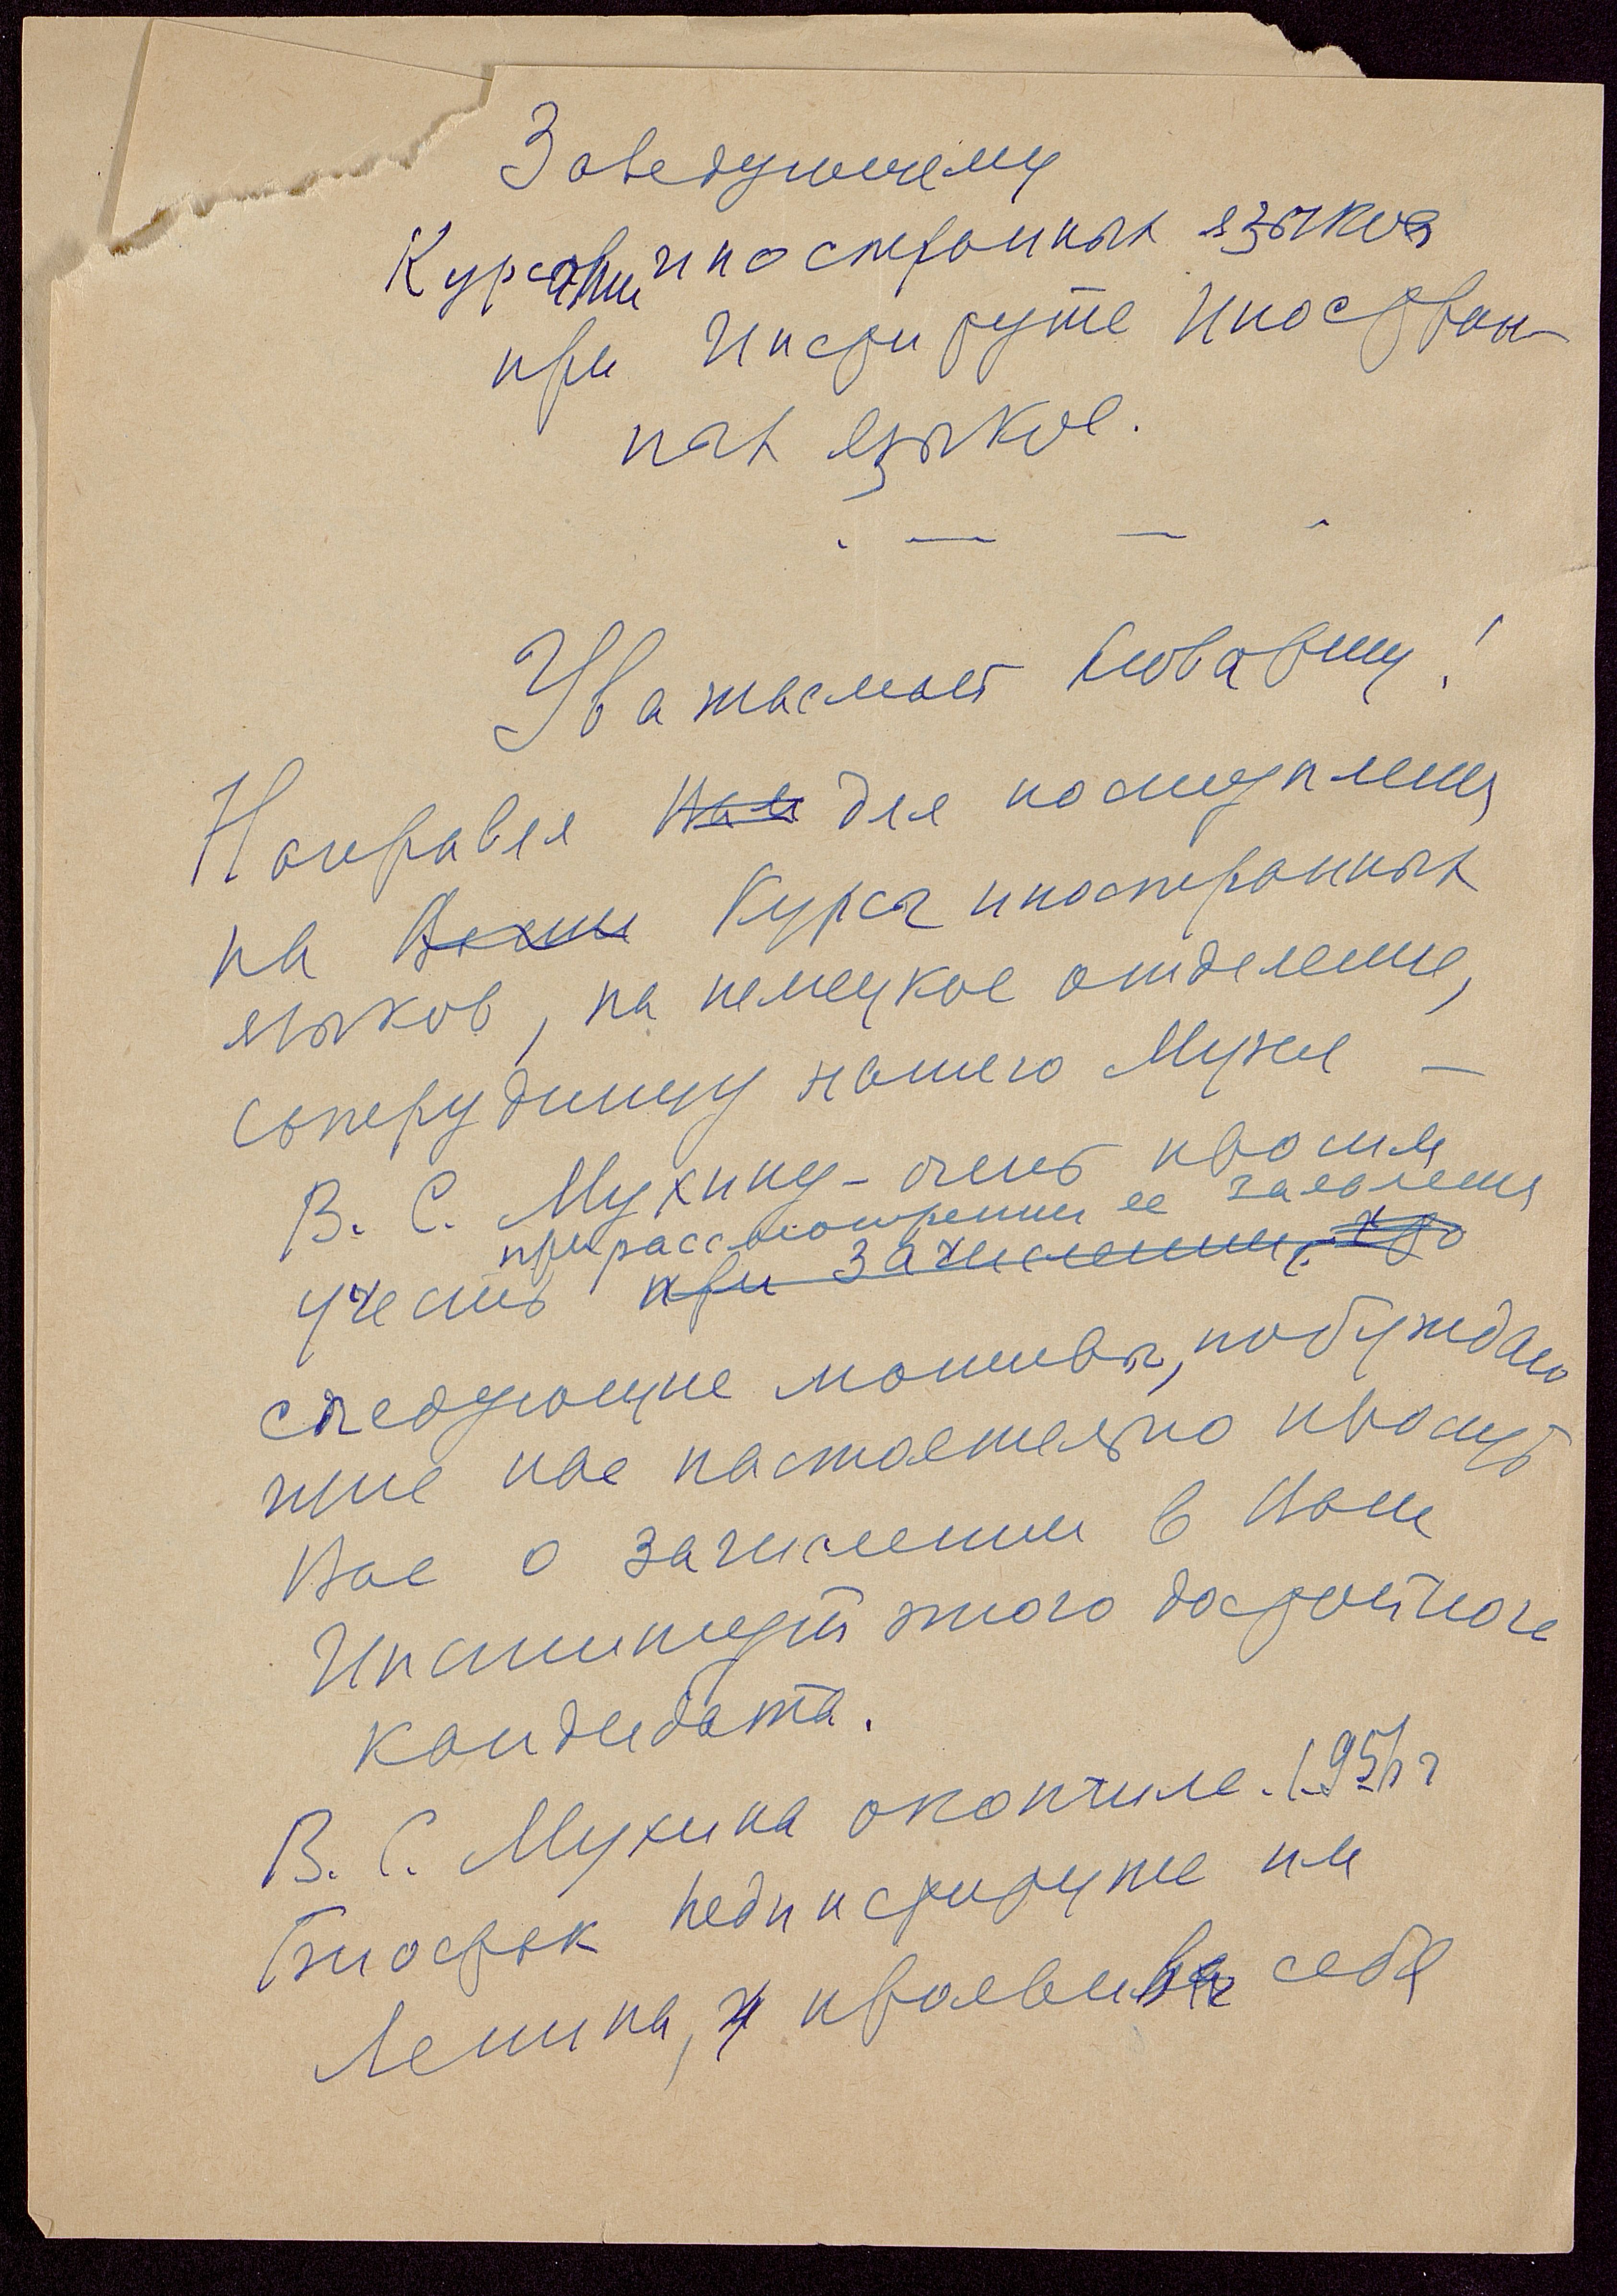 Заведующему
Курсами иностранных языков
при Институте Иностран-
ных языков.
Уважаемый товарищ!
Направляя Вам для поступления
на Ваши Курсы иностранных
языков, на немецкое отделение,
сотрудницу нашего Музея –
В. С. Мухину – очень просим
при рассмотрении ее заявления
учесть при зачислении, что
следующие мотивы, побуждаю
щие нас настоятельно просить
Вас о зачислении в Ваш
Институт этого достойного
кандидата.
В. С. Мухина окончила 1951 г
Биофак Пединституте им
Ленина, и проявив себя